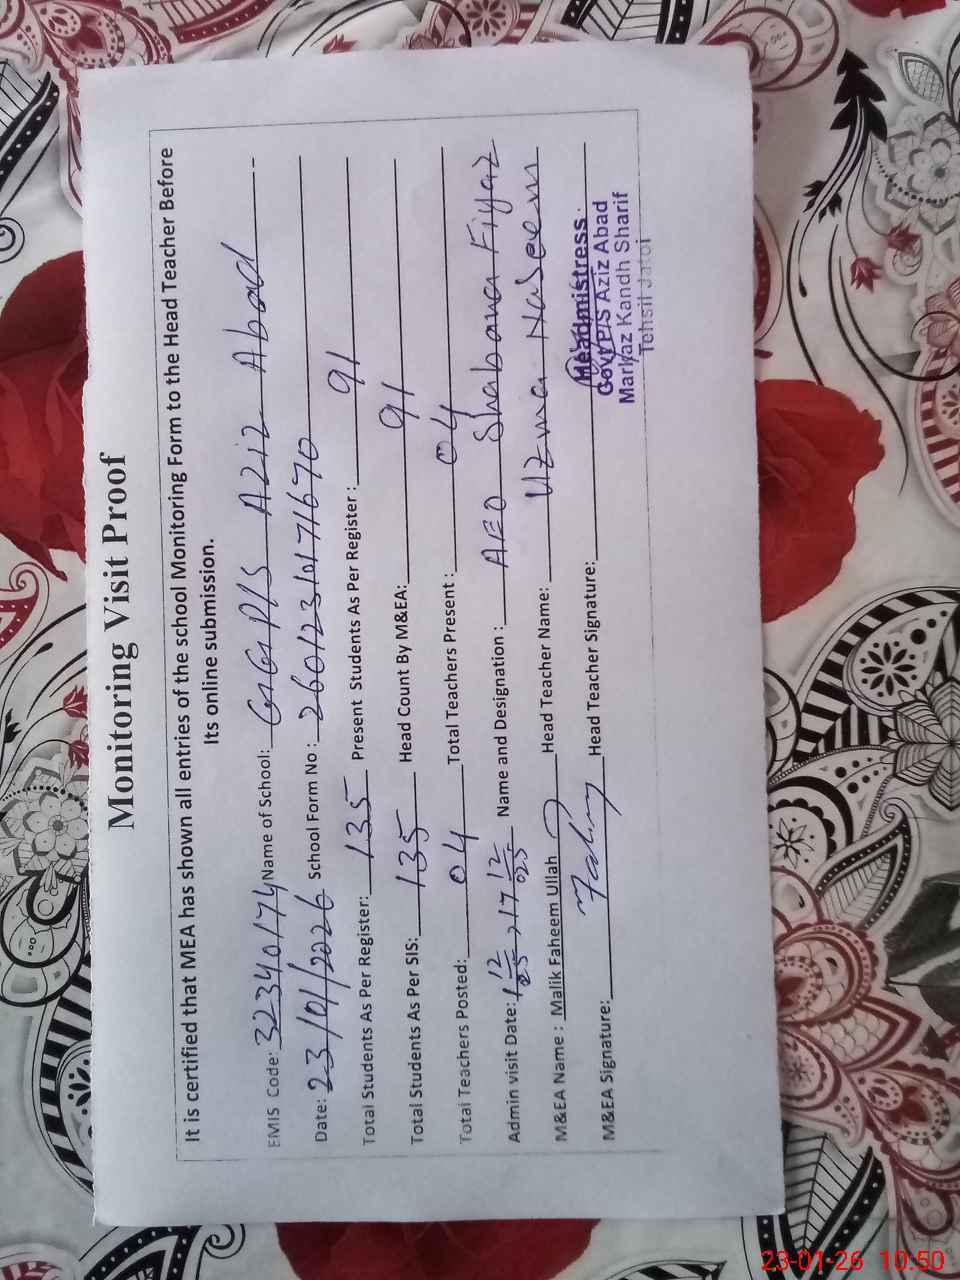 Monitoring Visit Proof
It is certified that MEA has shown all entries of the school Monitoring Form to the Head Teacher Before
Its online submission.
EMIS Code: 32340174 Name of School: GGPS Aziz Abad
Date: 23/01/2026 School Form No : 26012310171670
Total Students As Per Register: 135 Present Students As Per Register : 91
Total Students As Per SIS: 135 Head Count By M&EA: 91
Total Teachers Posted: 04 Total Teachers Present : 04
Admin visit Date: Name and Designation : AEO Shabana Fiyaz
M&EA Name : Malik Faheem Ullah Head Teacher Name: Uzma Naseem
M&EA Signature: Head Teacher Signature:
Headmistress
Govt P/S Aziz Abad
Markaz Kandh Sharif
Tehsil Jatoi
23-01-26 10:50